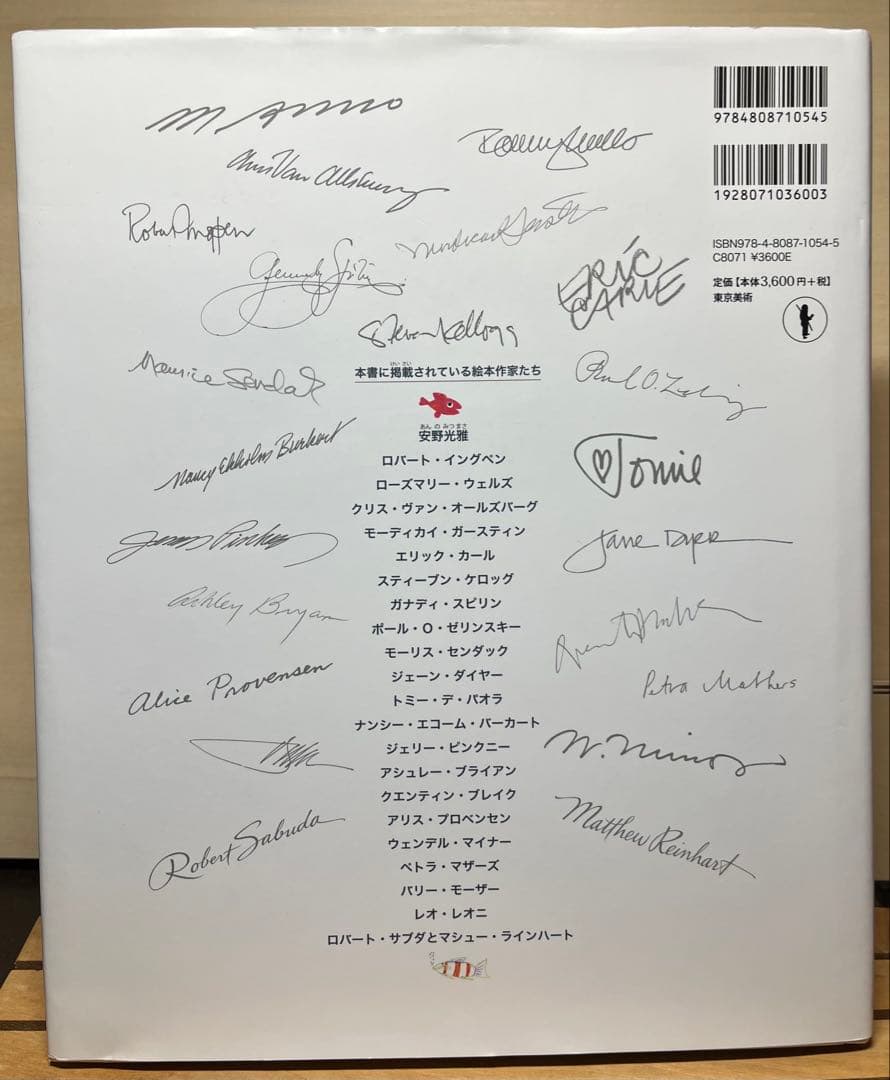 M. Anno
9784808710545
Chris Van Allsburg
1928071036003
Robert Ingpen
ISBN978-4-8087-1054-5
C8071 ¥3600E
ERIC CARLE
定価【本体3,600円+税】
東京美術
Steven Kellogg
Maurice Sendak
けいさい
本書に掲載されている絵本作家たち
Paul O. Zelinsky
あんのみつまさ
安野光雅
Nancy Ekholm Burkert
Tomie
ロバート・イングペン
ローズマリー・ウェルズ
クリス・ヴァン・オールズバーグ
モーディカイ・ガースティン
エリック・カール
スティーブン・ケロッグ
ガナディ・スピリン
ポール・O・ゼリンスキー
モーリス・センダック
ジェーン・ダイヤー
トミー・デ・パオラ
ナンシー・エコーム・バーカート
ジェリー・ピンクニー
アシュレー・ブライアン
クエンティン・ブレイク
アリス・プロベンセン
ウェンデル・マイナー
ペトラ・マザーズ
バリー・モーザー
レオ・レオニ
ロバート・サブダとマシュー・ラインハート
Jerry Pinkney
Jane Dyer
Ashley Bryan
Quentin Blake
Alice Provensen
Petra Mathers
W. Minor
Robert Sabuda
Matthew Reinhart